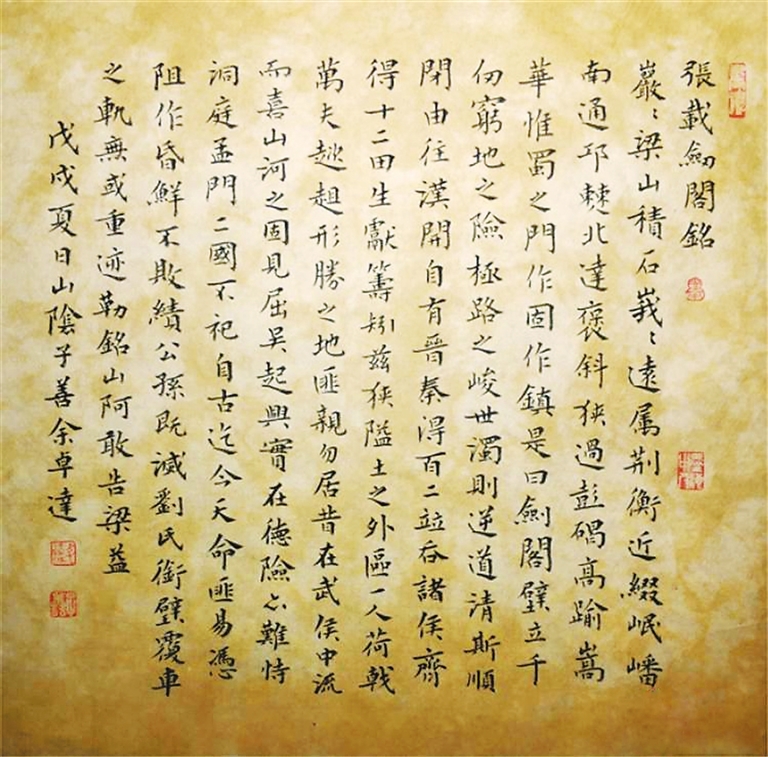 張載劒閣銘
巖〻梁山積石峩〻遠属荆衡近綴岷嶓
南通邛僰北達褒斜狭過彭碣高踰嵩
華惟蜀之門作固作鎮是曰劍閣壁立千
仞窮地之險極路之峻世濁則逆道清斯順
閉由往漢開自有晉秦得百二竝吞諸侯齊
得十二田生獻籌矧兹狭隘土之外區一人荷戟
萬夫趑趄形勝之地匪親勿居昔在武侯中流
而喜山河之固見屈吳起興實在德險亦難恃
洞庭孟門二國不祀自古迄今天命匪易憑
阻作昏鮮不敗績公孫既滅劉氏銜璧覆車
之軌無或重迹勒銘山阿敢告梁益
戊戌夏日山陰子善余卓達